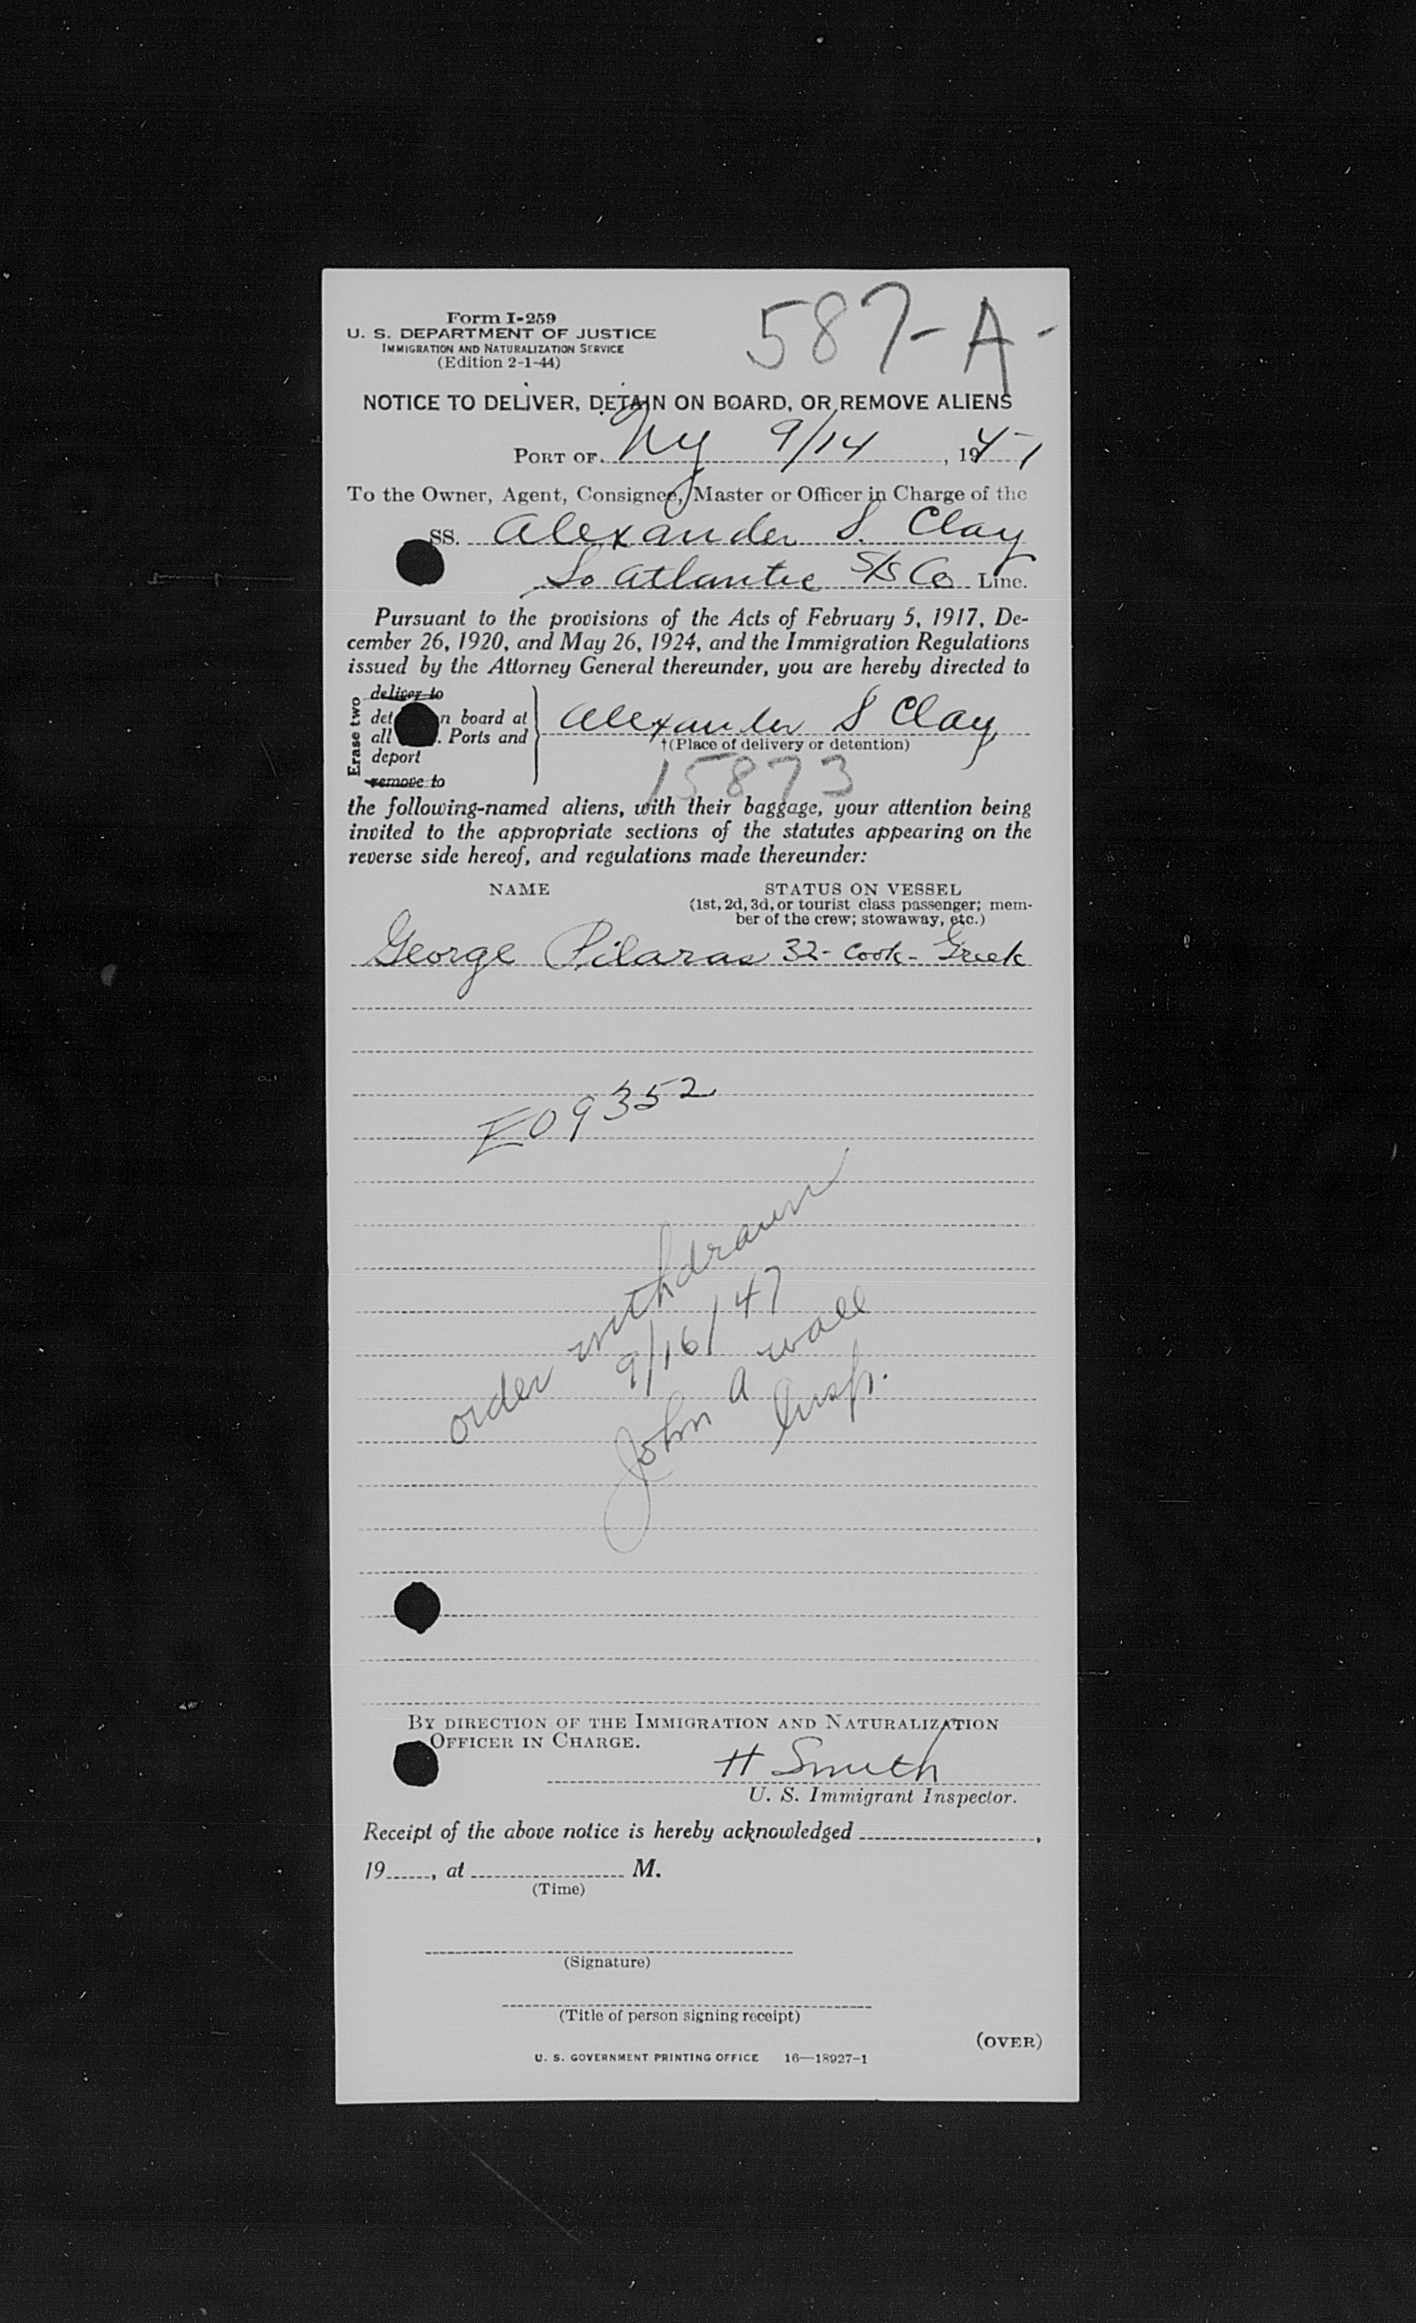 587-A-
Form I-259
U. S. DEPARTMENT OF JUSTICE
IMMIGRATION AND NATURALIZATION SERVICE
(Edition 2-1-44)
NOTICE TO DELIVER, DETAIN ON BOARD, OR REMOVE ALIENS
PORT OF NY 9/14, 1947
To the Owner, Agent, Consignee, Master or Officer in Charge of the
SS. Alexander S. Clay
So Atlantic S/S Co Line.
Pursuant to the provisions of the Acts of February 5, 1917, De-
cember 26, 1920, and May 26, 1924, and the Immigration Regulations
issued by the Attorney General thereunder, you are hereby directed to
Erase two
deliver to
det n board at
all . Ports and
deport
remove to
Alexander S Clay
†(Place of delivery or detention)
15873
the following-named aliens, with their baggage, your attention being
invited to the appropriate sections of the statutes appearing on the
reverse side hereof, and regulations made thereunder:
NAME STATUS ON VESSEL
(1st, 2d, 3d, or tourist class passenger; mem-
ber of the crew; stowaway, etc.)
George Pilaras 32- Cook- Greek
E09352
order withdrawn
9/16/47
John A Wall
Insp.
BY DIRECTION OF THE IMMIGRATION AND NATURALIZATION
OFFICER IN CHARGE.
H Smith
U. S. Immigrant Inspector.
Receipt of the above notice is hereby acknowledged ,
19 , at M.
(Time)
(Signature)
(Title of person signing receipt)
(OVER)
U. S. GOVERNMENT PRINTING OFFICE 16—18927-1